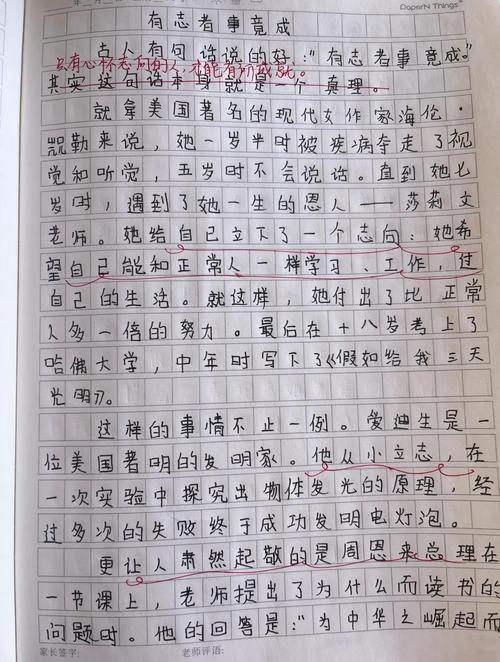 DoperN Things
有志者事竟成
古人有句话说的好:"有志者事竟成。"
只有心怀志向的人,才能有所成就。
其实这句话本身就是一个真理。
就拿美国著名的现代女作家海伦·
凯勒来说,她一岁半时被疾病夺走了视
觉和听觉,五岁时不会说话。直到她七
岁时,遇到了她一生的恩人——莎莉文
老师。她给自己立下了一个志向:她希
望自己能和正常人一样学习、工作,过
自己的生活。就这样,她付出了比正常
人多一倍的努力。最后在十八岁考上了
哈佛大学,中年时写下了《假如给我三天
光明》。
这样的事情不止一例。爱迪生是一
位美国著明的发明家。他从小立志,在
一次实验中探究出物体发光的原理,经
过多次的失败终于成功发明电灯泡。
更让人肃然起敬的是周恩来总理在
一节课上,老师提出了为什么而读书的
问题时。他的回答是:"为中华之崛起而
家长签字: 老师评语: